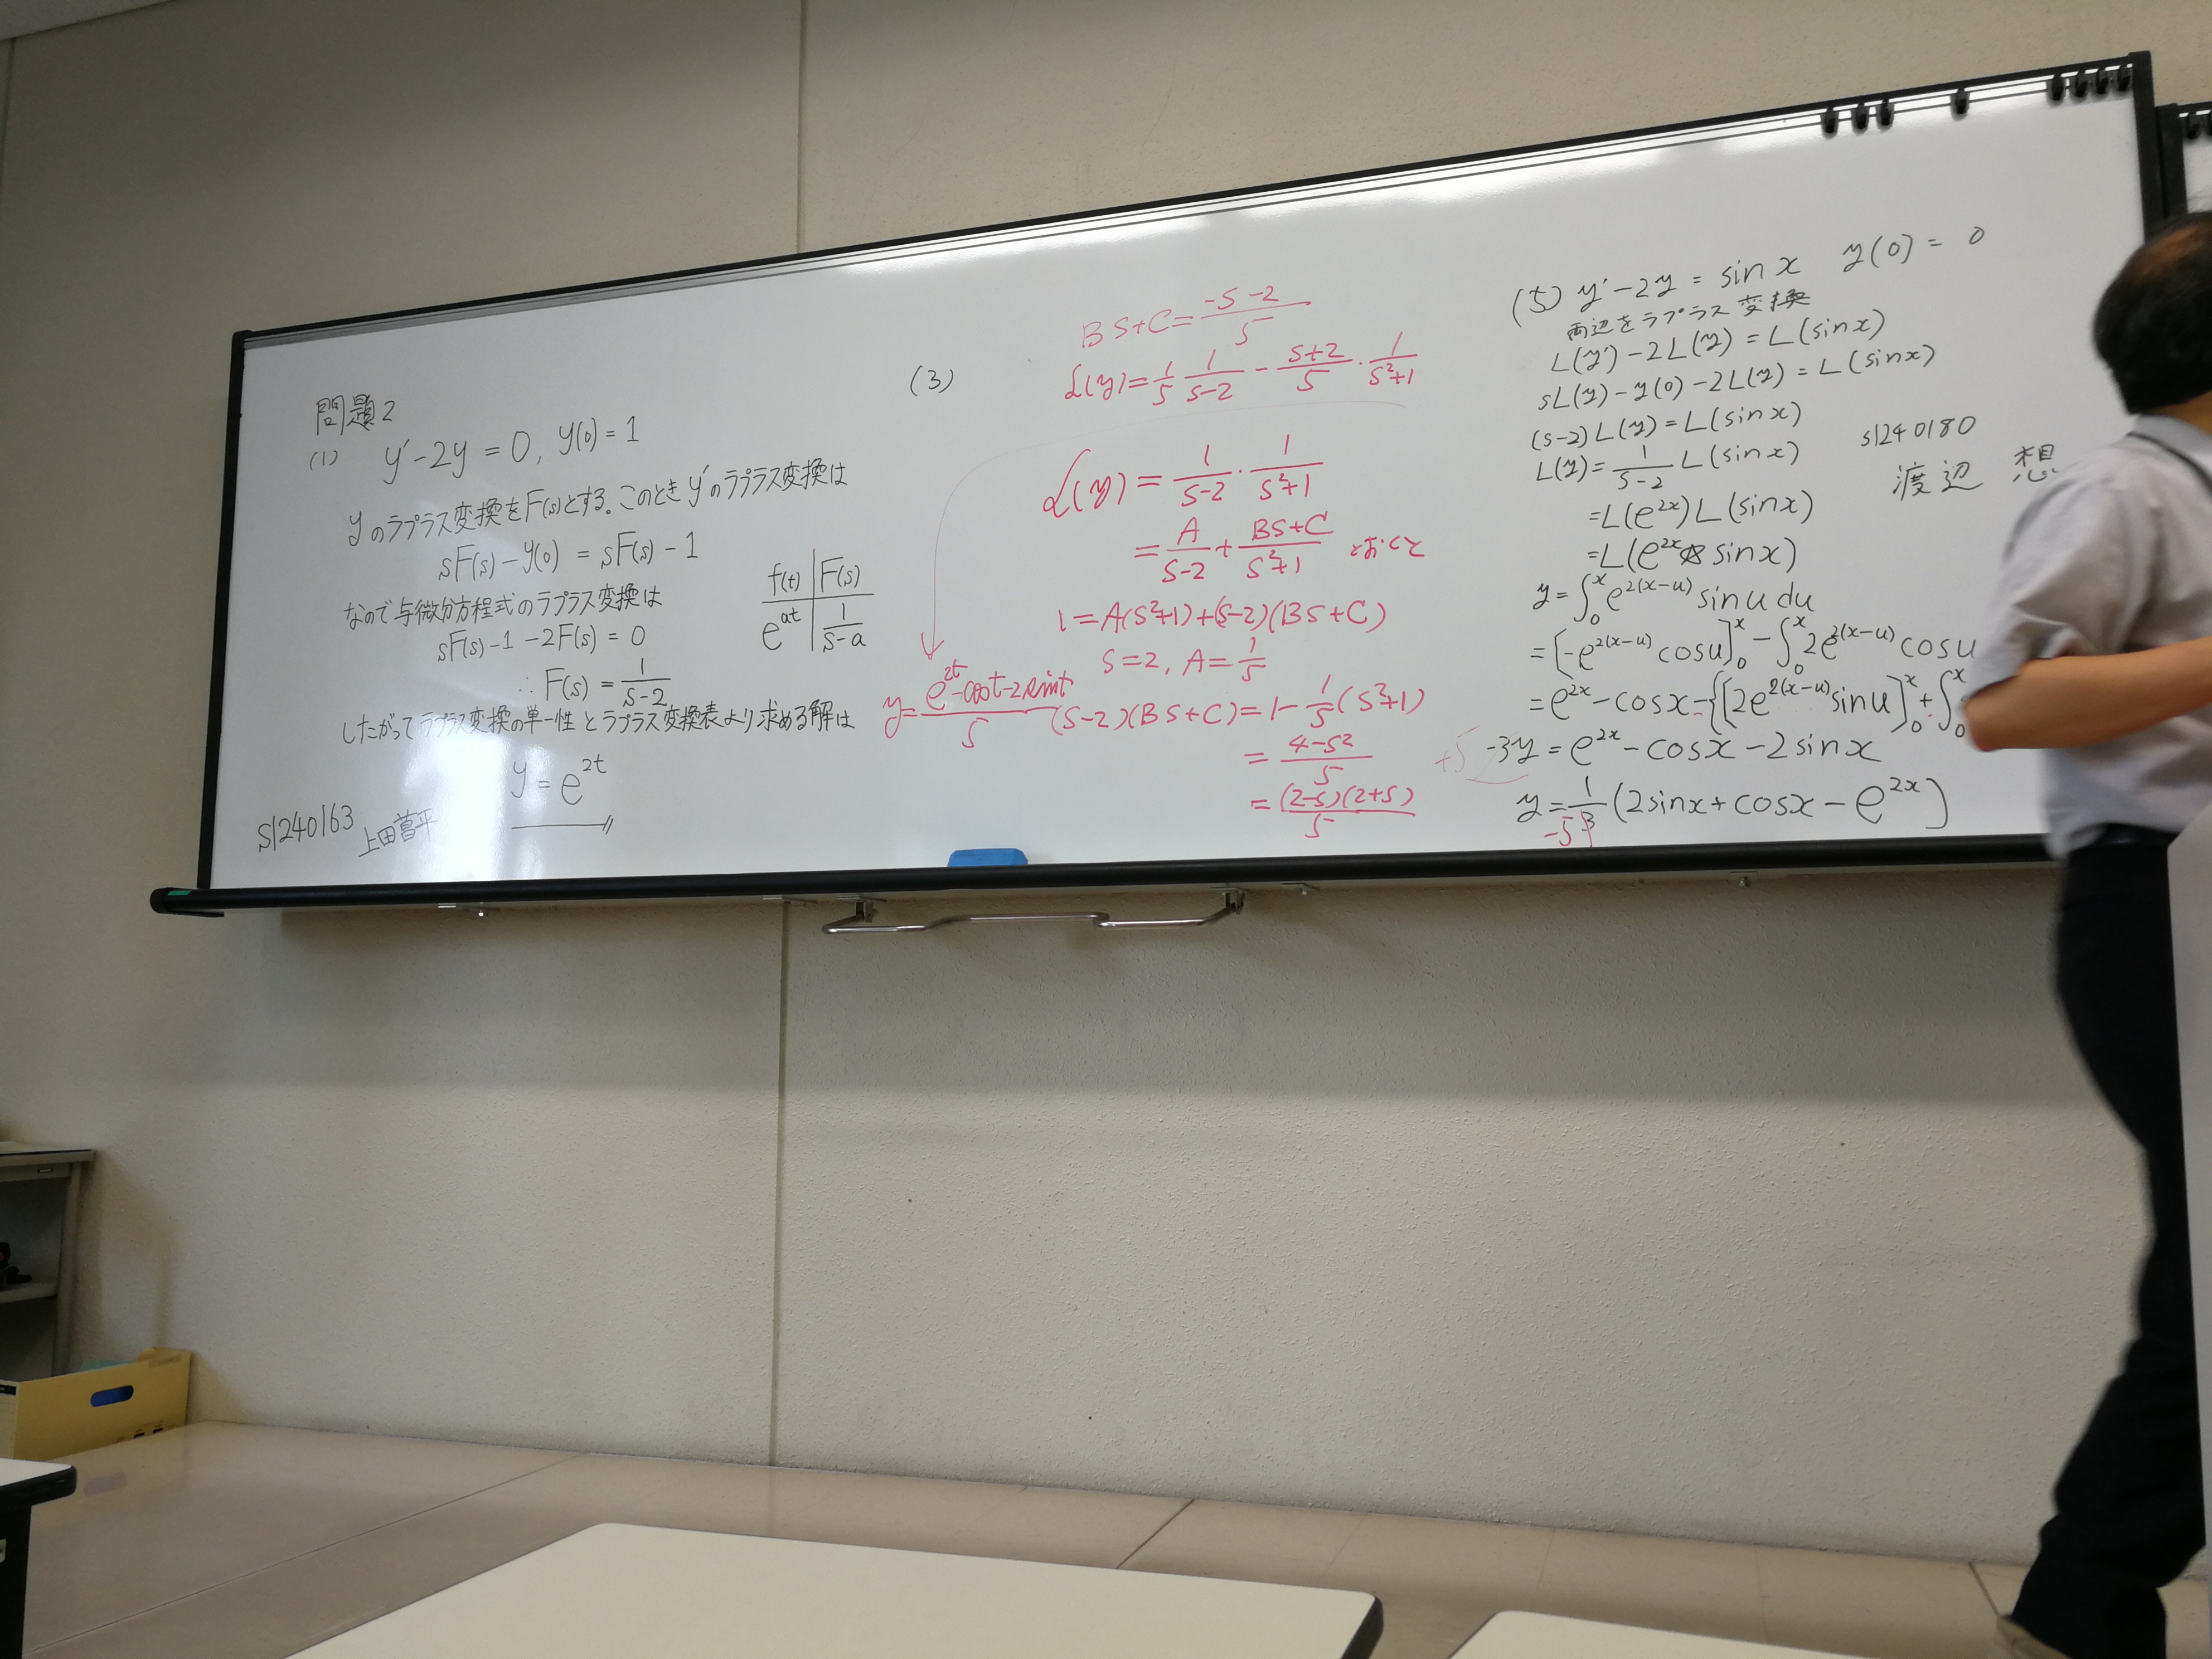 問題2
(1) y'-2y = 0, y(0) = 1
yのラプラス変換をF(s)とする。このときy'のラプラス変換は
sF(s)-y(0) = sF(s)-1
なので与微分方程式のラプラス変換は
sF(s)-1-2F(s) = 0
∴ F(s) = 1/(s-2)
f(t) | F(s)
e^{at} | 1/(s-a)
したがってラプラス変換の単一性とラプラス変換表より求める解は
y = e^{2t}
S1240163 上田菖平
(3)
BS+C = (-S-2)/5
L(y) = 1/5 1/(S-2) - (S+2)/5 · 1/(S²+1)
L(y) = 1/(S-2) · 1/(S²+1)
= A/(S-2) + (BS+C)/(S²+1) とおくと
1 = A(S²+1)+(S-2)(BS+C)
S=2, A=1/5
(S-2)(BS+C) = 1 - 1/5 (S²+1)
= (4-S²)/5
= (2-S)(2+S)/5
y = (e^{2t}-cost-2sint)/5
(5) y'-2y = sin x y(0) = 0
両辺をラプラス変換
L(y')-2L(y) = L(sinx)
sL(y)-y(0)-2L(y) = L(sinx)
(s-2)L(y) = L(sinx)
L(y) = 1/(s-2) L(sinx)
=L(e^{2x})L(sinx)
=L(e^{2x}*sinx)
y = ∫_0^x e^{2(x-u)} sinu du
= [-e^{2(x-u)} cosu]_0^x - ∫_0^x 2e^{2(x-u)} cosu
= e^{2x}-cosx-{[2e^{2(x-u)} sinu]_0^x + ∫_0^x
+5 -3y = e^{2x}-cosx-2sinx
y = 1/3 (2sinx+cosx-e^{2x})
-5
s1240180
渡辺 想